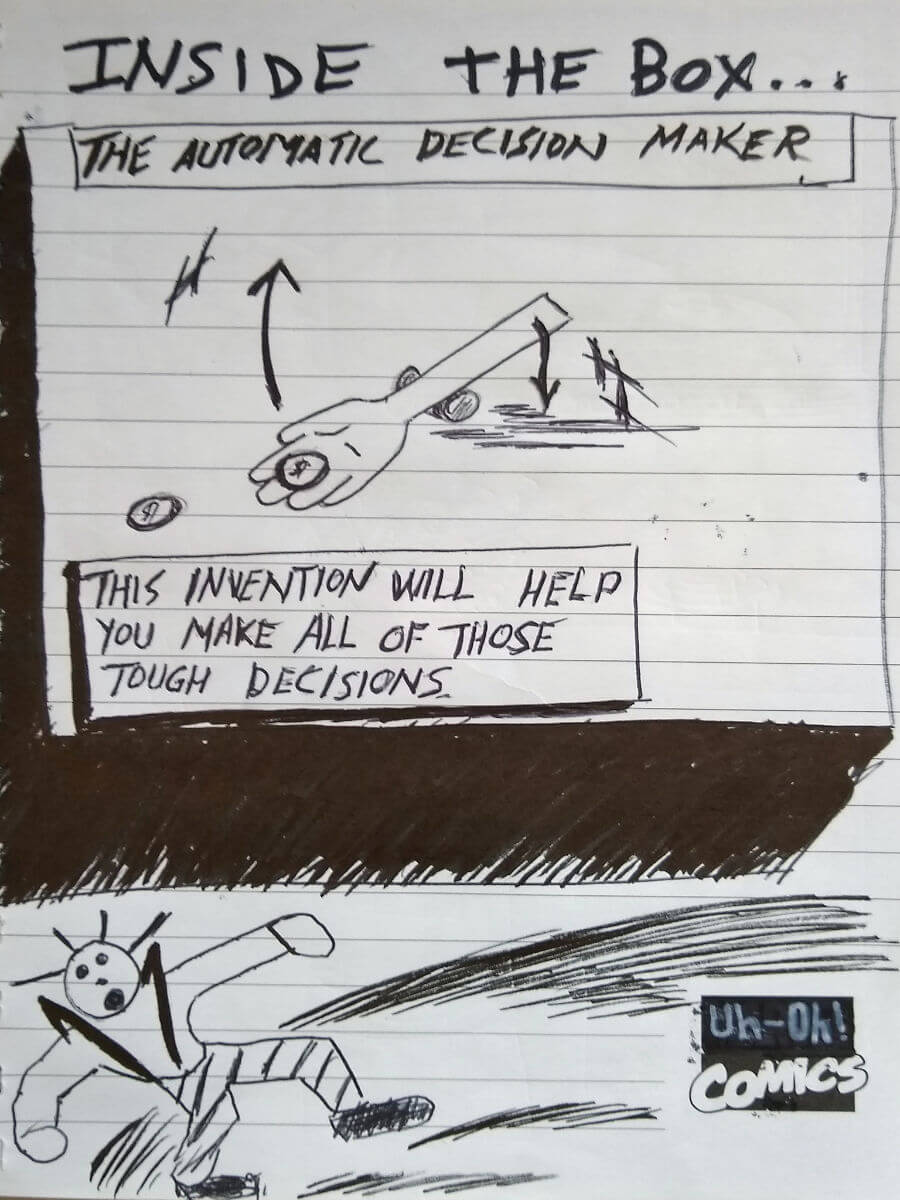 INSIDE THE BOX...
THE AUTOMATIC DECISION MAKER
$
$1
THIS INVENTION WILL HELP
YOU MAKE ALL OF THOSE
TOUGH DECISIONS.
Uh-Oh!
COMICS